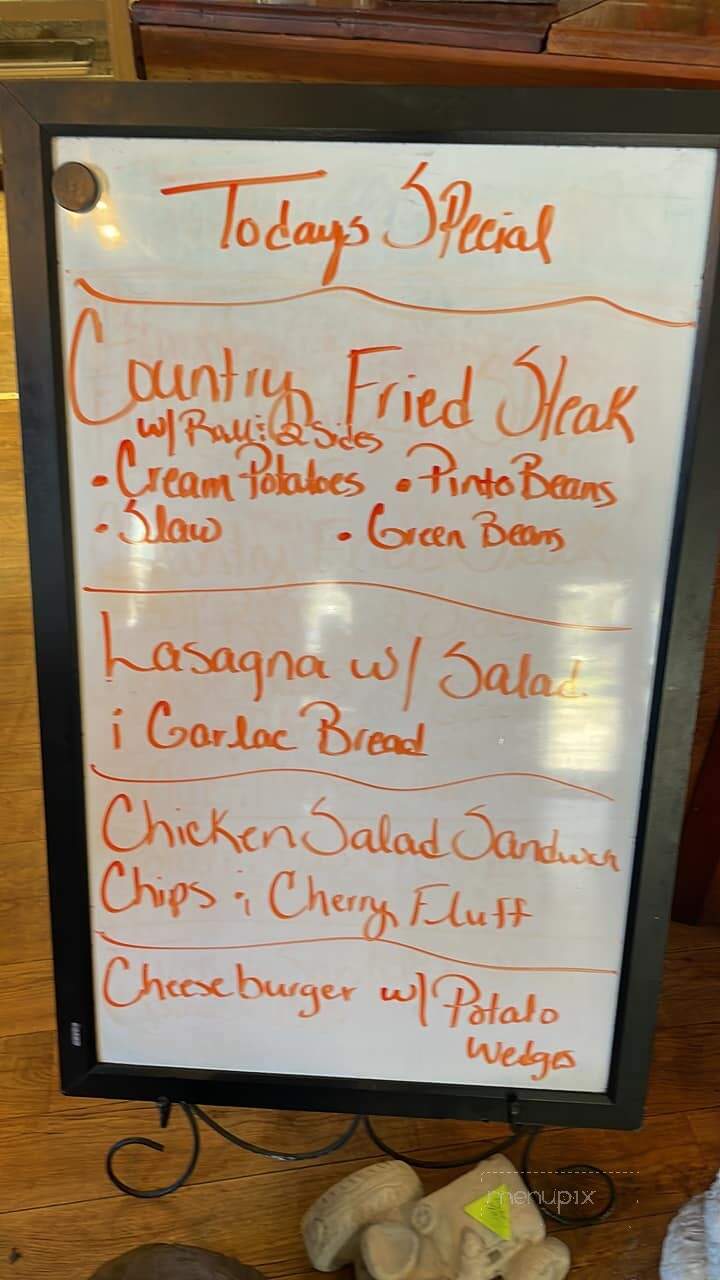 Todays Special
Country Fried Steak
w/ Roll & 2 Sides
• Cream Potatoes • Pinto Beans
• Slaw • Green Beans
Lasagna w/ Salad
& Garlac Bread
Chicken Salad Sandwich
Chips & Cherry Fluff
Cheeseburger w/ Potato
Wedges
menupix